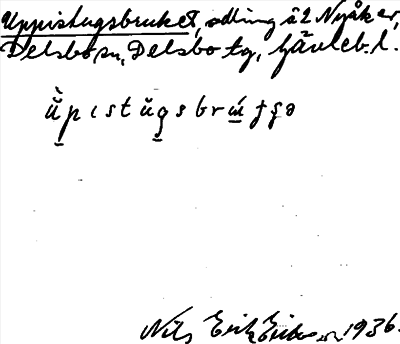 Uppistugsbruket, odling å 2 Nyåker,
Delsbo sn, Delsbo tg, Gävleb. l.
ùpıstŭgsbrɯ́tʃə
Nils Erik Eriksson 1936.